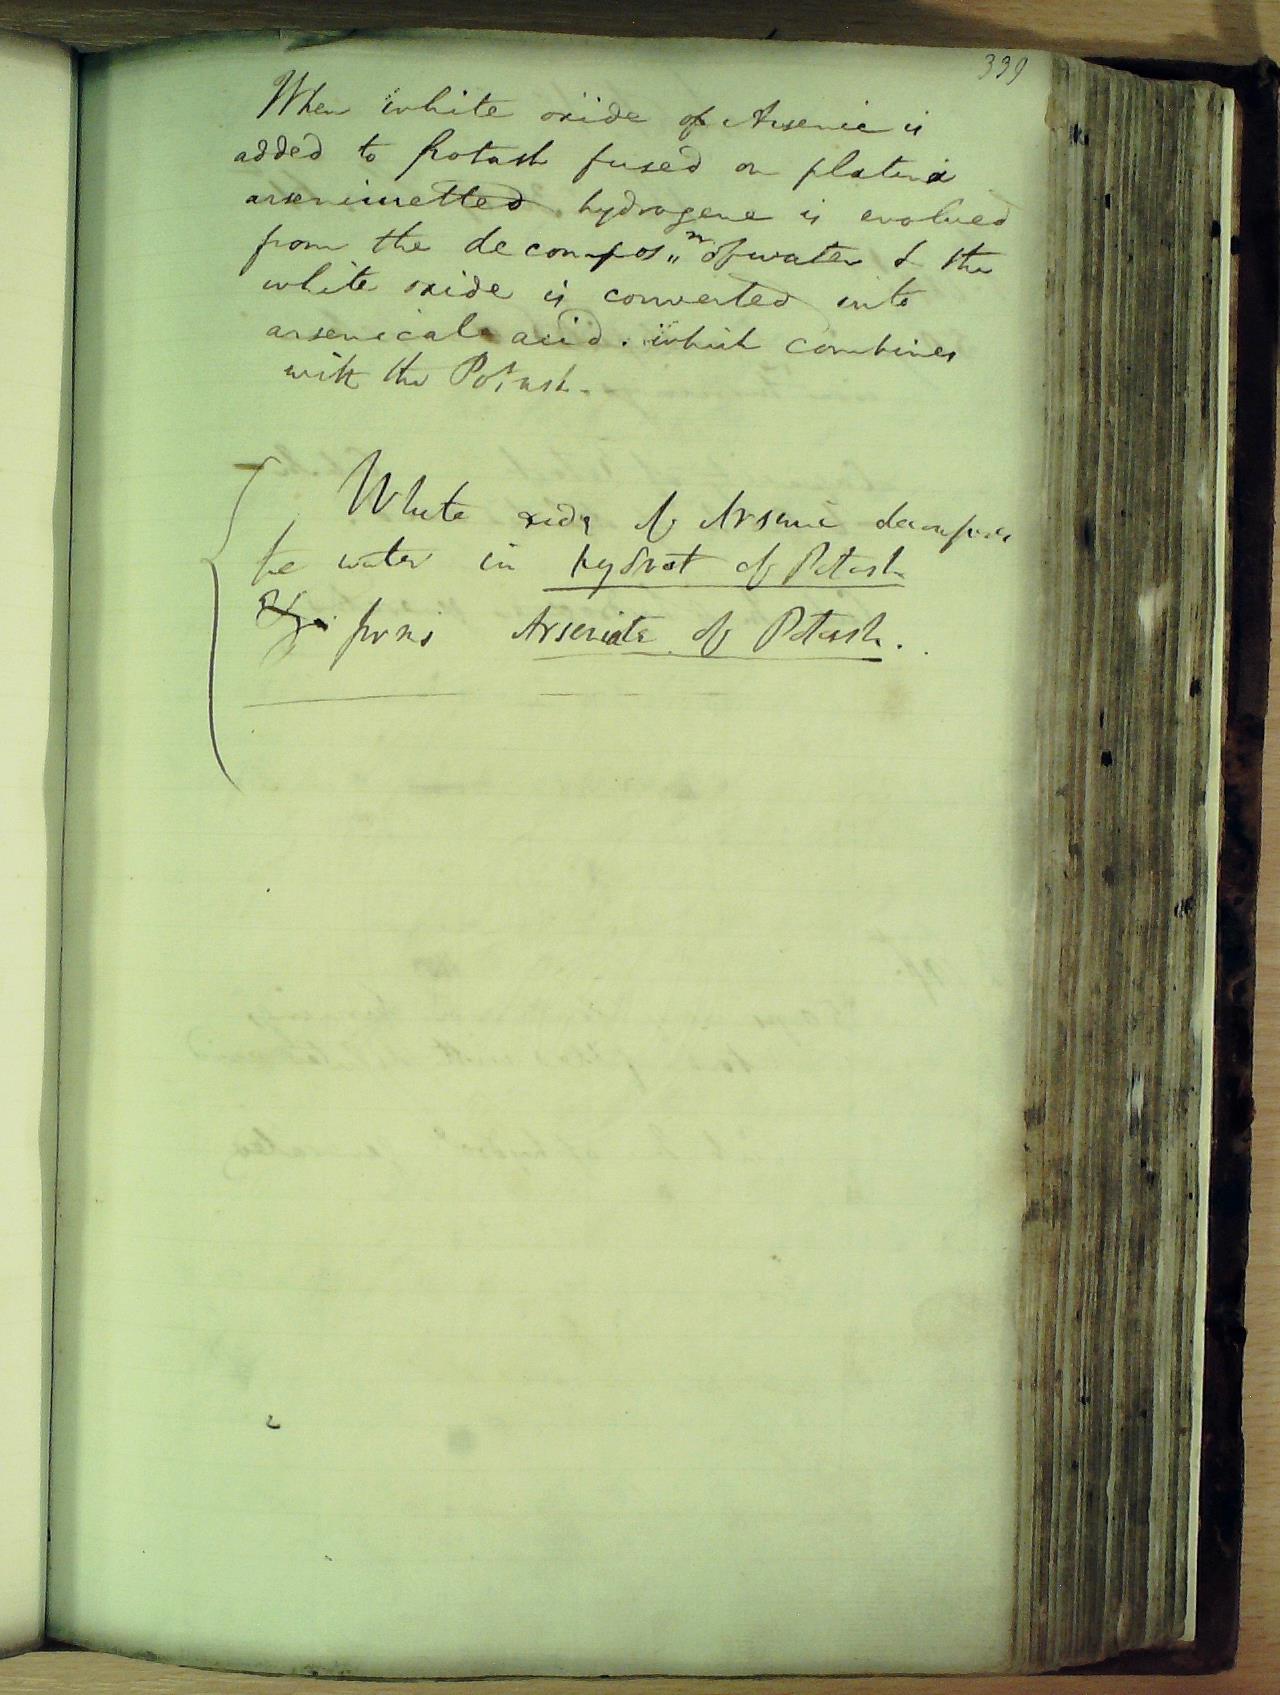 399
When white oxide of Arsenic is
added to Potash fused on platina
arseniuretted hydrogene is evolved
from the decompos,,n of water & the
white oxide is converted into
arsenical acid. which combines
with the Potash.
White oxide of Arsenic decomposes
the water in hydrat of Potash
forms Arseniate of Potash.